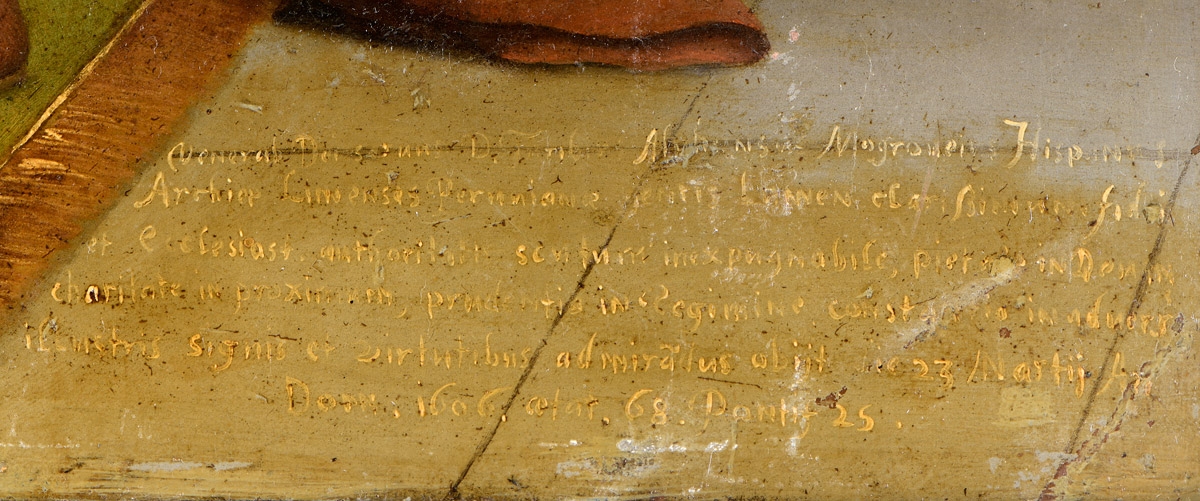 Venerab Dnus D. Alphonsus Mogroueius Hispanus
Archiep Limensis Peruuianae gentis Lumen clarissimum fidei
et Ecclesiast. authoritatis scutum inexpugnabile, pietate in Deum
charitate in proximum, prudentia in Regimine constantia in aduers
illustris signis et virtutibus admiratus obijt die 23 Martij An
Dom. 1606, aetat. 68. Pontif 25.